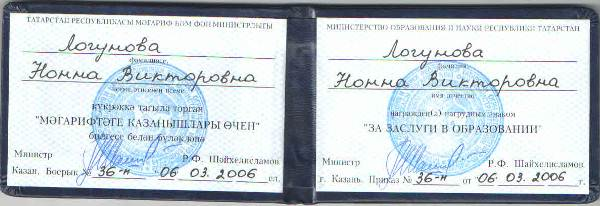 ТАТАРСТАН РЕСПУБЛИКАСЫ МӘГАРИФ ҺӘМ ФӘН МИНИСТРЛЫГЫ
Логунова
фамилиясе
Нонна Викторовна
исеме, әтисенең исеме
күкрәккә тагыла торган
"МӘГАРИФТӘГЕ КАЗАНЫШЛАРЫ ӨЧЕН"
билгесе белән бүләкләнә
Министр Р.Ф. Шәйхелисламов
Казан. Боерык № 36-н 06 03. 2006 ел.
МИНИСТЕРСТВО ОБРАЗОВАНИЯ И НАУКИ РЕСПУБЛИКИ ТАТАРСТАН
Логунова
фамилия
Нонна Викторовна
имя отчество
награжден(а) нагрудным знаком
"ЗА ЗАСЛУГИ В ОБРАЗОВАНИИ"
Министр Р.Ф. Шайхелисламов
г. Казань. Приказ № 36-н от 06 03. 2006 г.